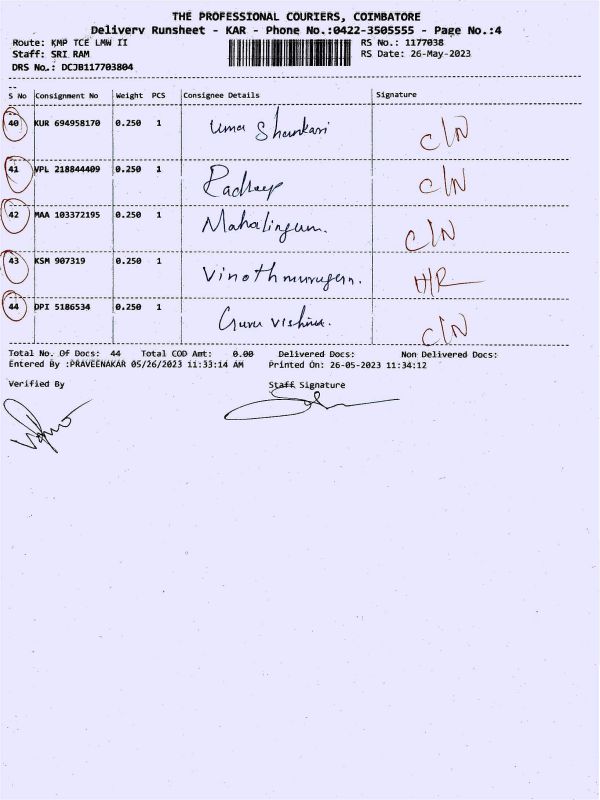 THE PROFESSIONAL COURIERS, COIMBATORE
Delivery Runsheet - KAR - Phone No.:0422-3505555 - Page No.:4
Route: KMP TCE LMW II RS No.: 1177038
Staff: SRI RAM RS Date: 26-May-2023
DRS No.: DCJB117703804
S No Consignment No Weight PCS Consignee Details Signature
40 KUR 694958170 0.250 1 Uma Shankari C/N
41 VPL 218844409 0.250 1 Pradeep C/N
42 MAA 103372195 0.250 1 Mahalingum. C/N
43 KSM 907319 0.250 1 Vinothmurugan. H/R
44 DPI 5186534 0.250 1 Guru C/N
Total No. Of Docs: 44 Total COD Amt: 0.00 Delivered Docs: Non Delivered Docs:
Entered By :PRAVEENAKAR 05/26/2023 11:33:14 AM Printed On: 26-05-2023 11:34:12
Verified By Staff Signature